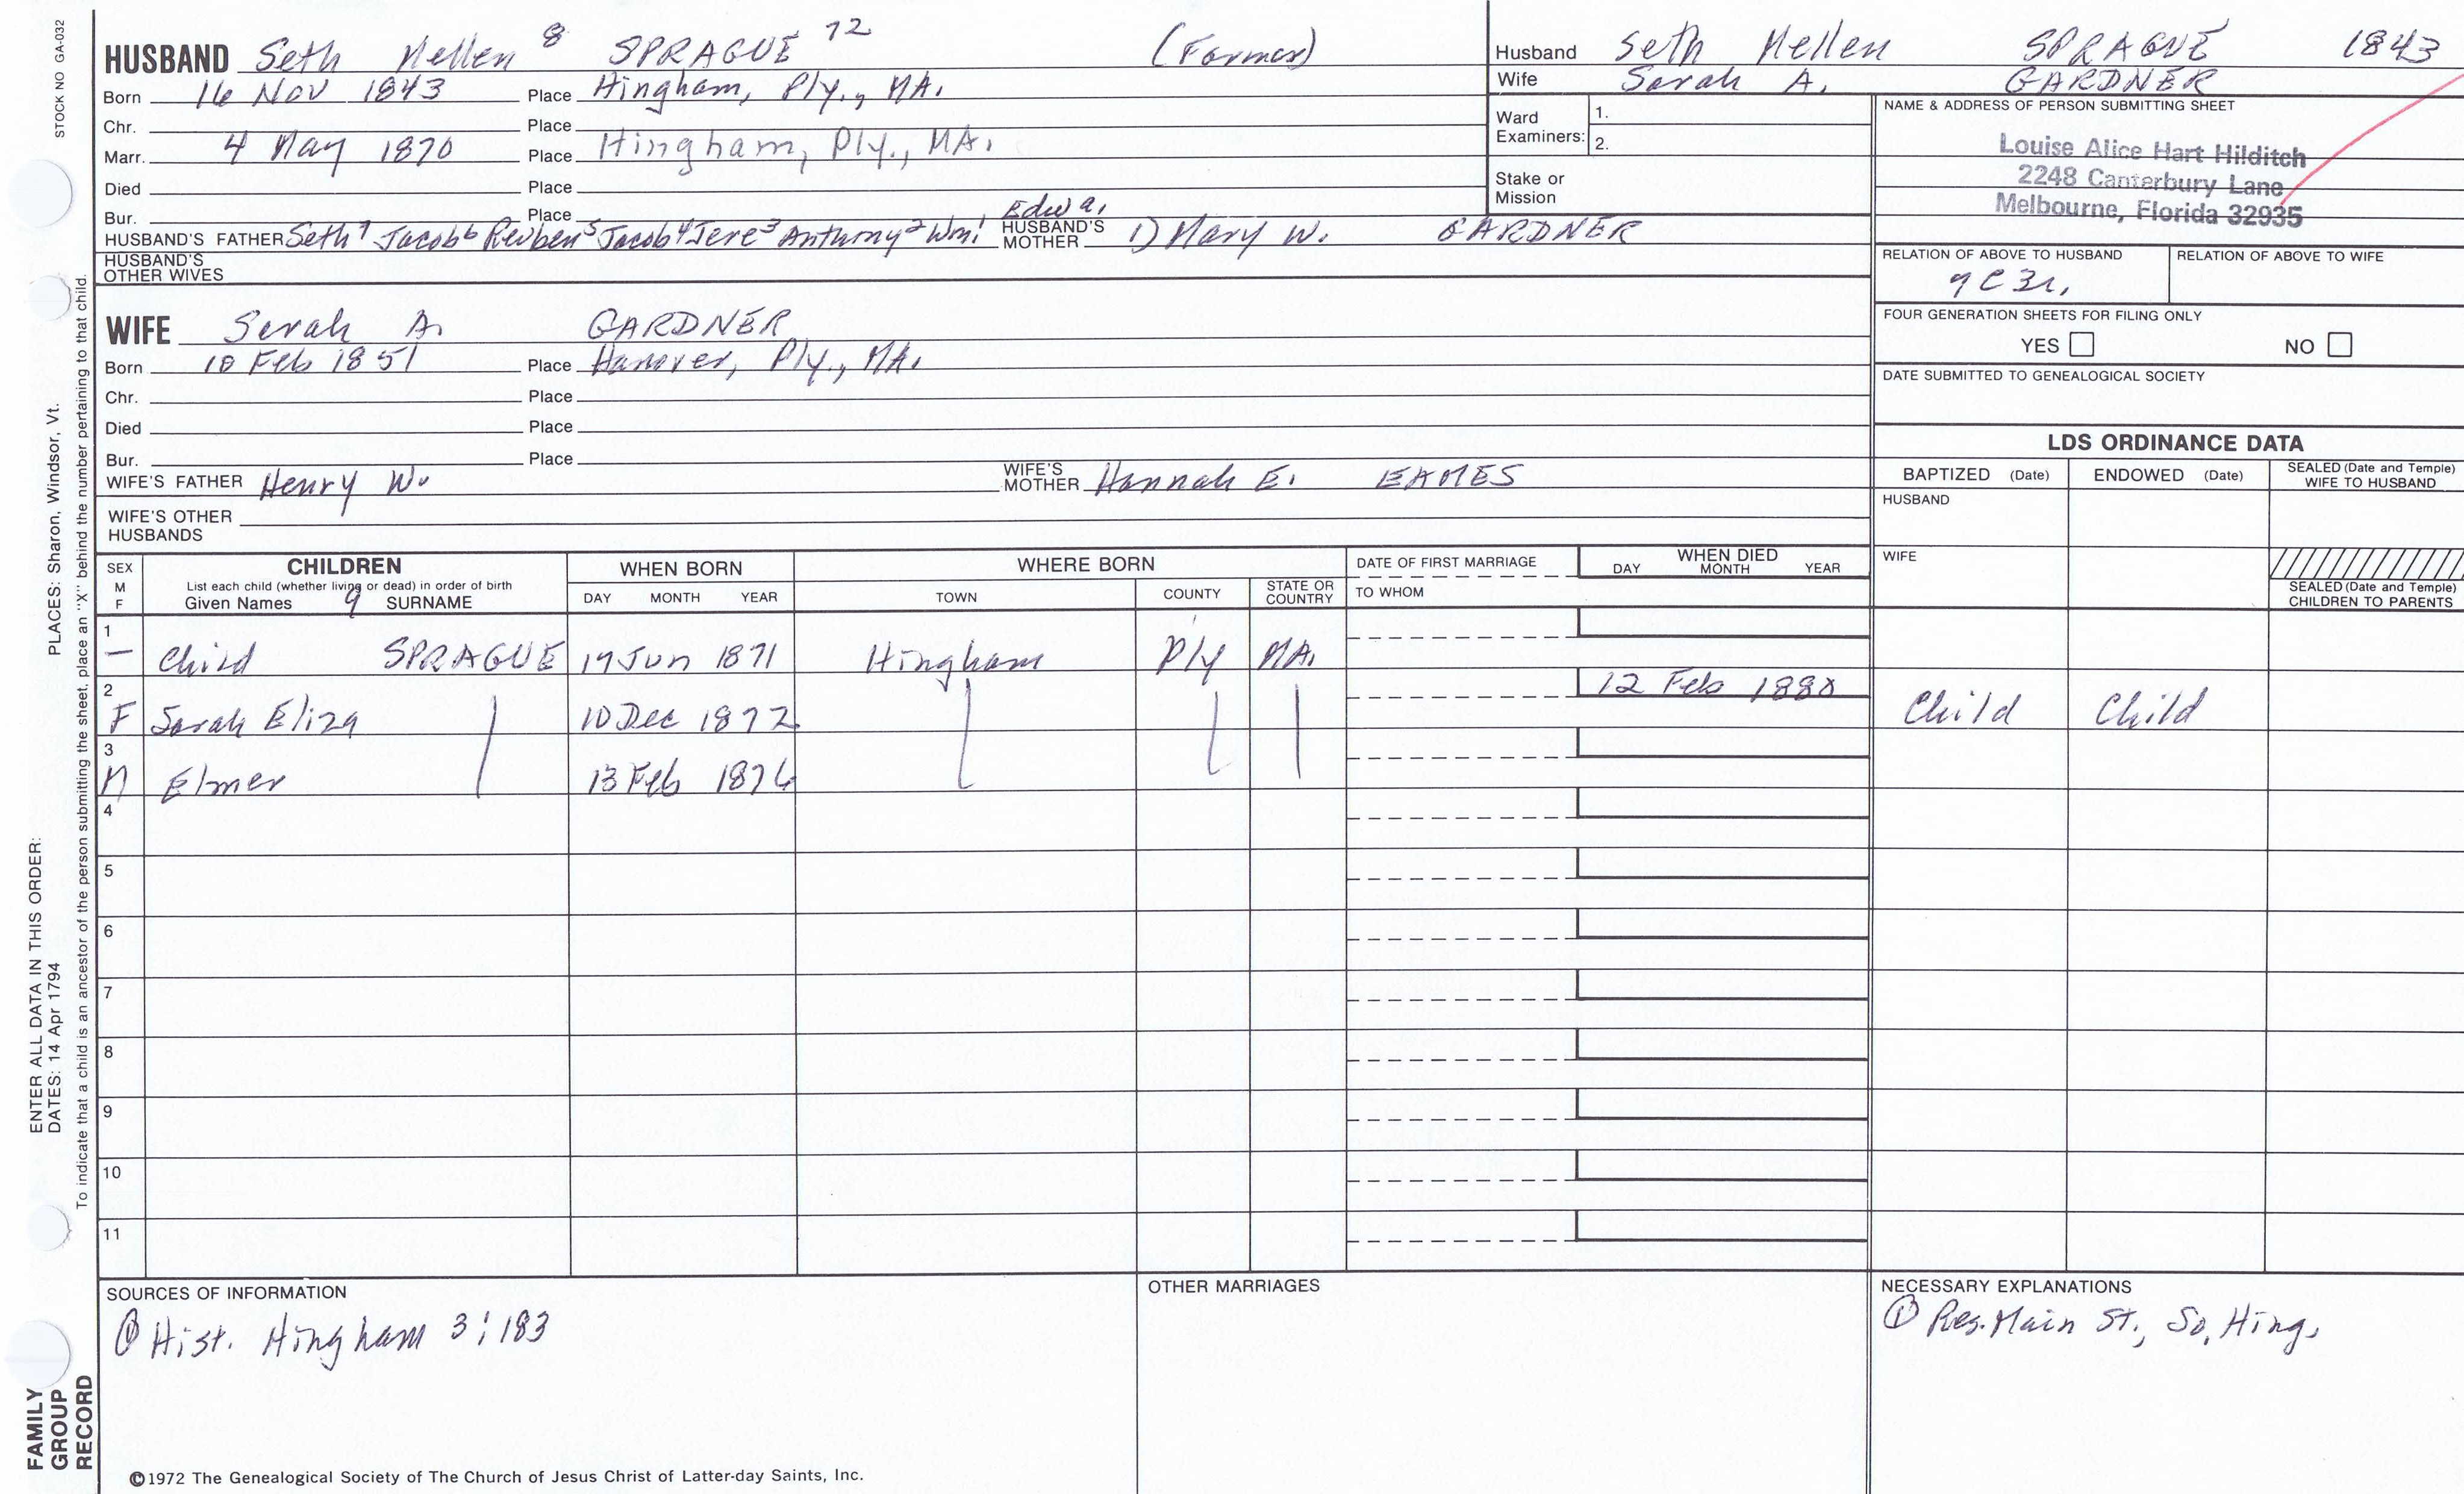 STOCK NO GA-032
HUSBAND Seth Mellen 8 SPRAGUE 72 (Farmer)
Born 16 Nov 1843 Place Hingham, Ply., MA.
Chr. Place
Marr. 4 May 1870 Place Hingham, Ply., MA.
Died Place
Bur. Place
HUSBAND'S FATHER Seth7 Jacob6 Reuben5 Jacob4 Jere3 Anthony2 Wm1 HUSBAND'S MOTHER 1) Mary W. GARDNER
Edwa.
HUSBAND'S OTHER WIVES
Husband Seth Mellen SPRAGUE 1843
Wife Sarah A. GARDNER
Ward Examiners: 1.
2.
Stake or Mission
NAME & ADDRESS OF PERSON SUBMITTING SHEET
Louise Alice Hart Hilditch
2248 Canterbury Lane
Melbourne, Florida 32935
RELATION OF ABOVE TO HUSBAND RELATION OF ABOVE TO WIFE
FOUR GENERATION SHEETS FOR FILING ONLY
YES NO
DATE SUBMITTED TO GENEALOGICAL SOCIETY
WIFE Sarah A. GARDNER
Born 10 Feb 1851 Place Hanover, Ply., MA.
Chr. Place
Died Place
Bur. Place
WIFE'S FATHER Henry W. WIFE'S MOTHER Hannah E. EAMES
WIFE'S OTHER HUSBANDS
LDS ORDINANCE DATA
BAPTIZED (Date) ENDOWED (Date) SEALED (Date and Temple) WIFE TO HUSBAND
HUSBAND
WIFE
SEALED (Date and Temple) CHILDREN TO PARENTS
SEX M F
CHILDREN
List each child (whether living or dead) in order of birth
Given Names 9 SURNAME
WHEN BORN
DAY MONTH YEAR
WHERE BORN
TOWN COUNTY STATE OR COUNTRY
DATE OF FIRST MARRIAGE
TO WHOM
WHEN DIED
DAY MONTH YEAR
1 — Child SPRAGUE 17 Jun 1871 Hingham Ply MA.
2 F Sarah Eliza 10 Dec 1872 12 Feb 1880 Child Child
3 M Elmer 13 Feb 1876
4
5
6
7
8
9
10
11
SOURCES OF INFORMATION
① Hist. Hingham 3:183
OTHER MARRIAGES
NECESSARY EXPLANATIONS
① Res. Main St., So. Hing.
©1972 The Genealogical Society of The Church of Jesus Christ of Latter-day Saints, Inc.
FAMILY
GROUP
RECORD
ENTER ALL DATA IN THIS ORDER:
DATES: 14 Apr 1794 PLACES: Sharon, Windsor, Vt.
To indicate that a child is an ancestor of the person submitting the sheet, place an "X" behind the number pertaining to that child.